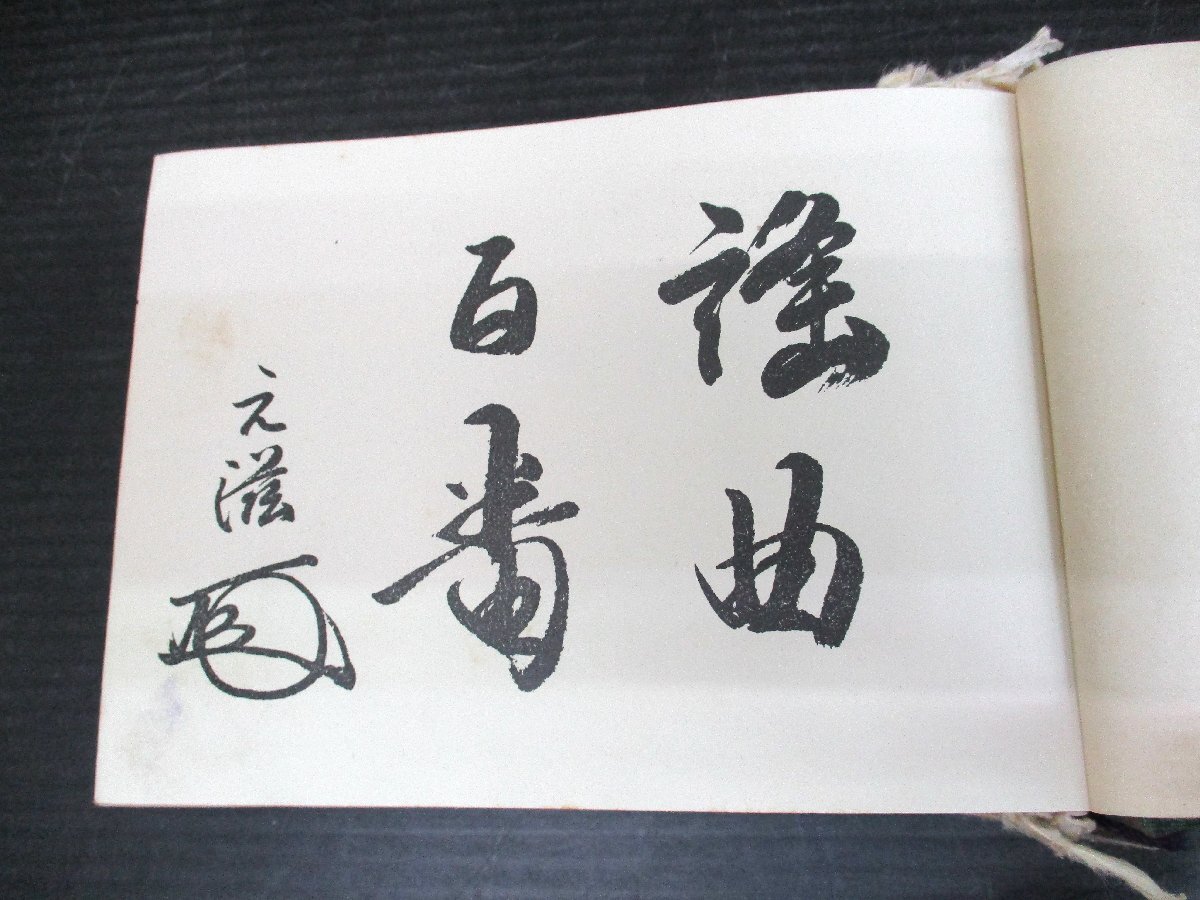 謡曲
百番
元滋